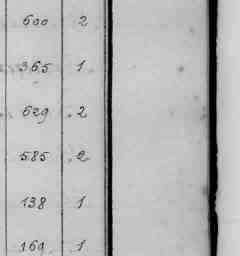 600 2
365 1
629 2
585 2
138 1
169 1